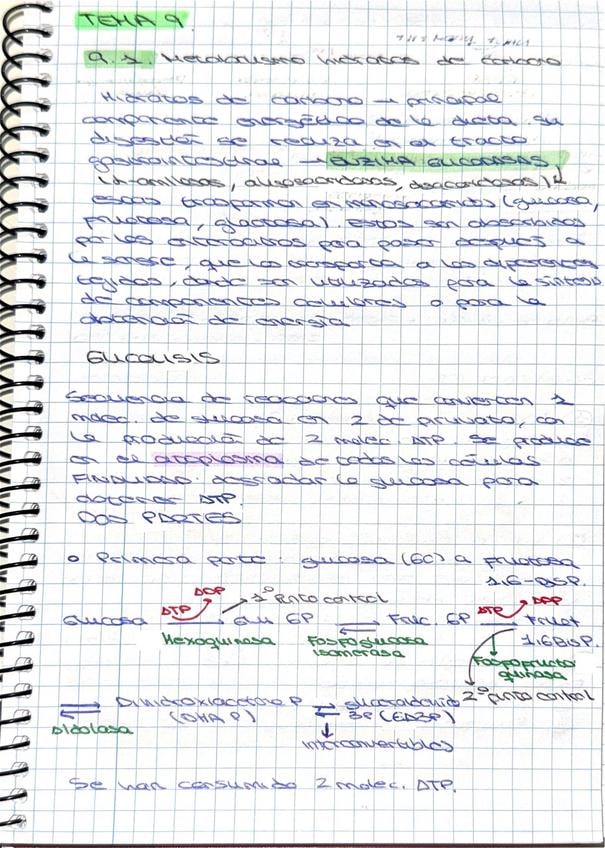 TEMA 9
9.1. Metabolismo hidratos de carbono
Hidratos de carbono → principal
componente energético de la dieta. Su
digestión se realiza en el tracto
gastrointestinal → ENZIMA GLUCOSASAS
(α-amilasas, oligosacaridasas, disacaridasas)
estas transforman en monosacáridos (glucosa,
fructosa, galactosa). Estos son absorbidos
por los enterocitos para pasar después a
la sangre, que los transporta a los diferentes
tejidos, donde son utilizados para la síntesis
de componentes celulares o para la
obtención de energía
GLUCOLISIS
Secuencia de reacciones que convierten 1
molec. de glucosa en 2 de piruvato, con
la producción de 2 molec. ATP. Se produce
en el citoplasma de todas las células
FINALIDAD: degradar la glucosa para
obtener ATP.
DOS PARTES
o Primera parte: glucosa (6C) a fructosa
1,6-BSP.
ADP 1º punto control ADP
Glucosa ATP → Glu 6P Fruc. 6P ATP → Fruct
1,6BisP.
Hexoquinasa Fosfoglucosa
isomerasa
Fosfofructo
quinasa
2º punto control
Dihidroxiacetona P ⇌ gliceraldehido
(DHAP) 3P (GA3P)
Aldolasa
interconvertibles
Se han consumido 2 molec. ATP.